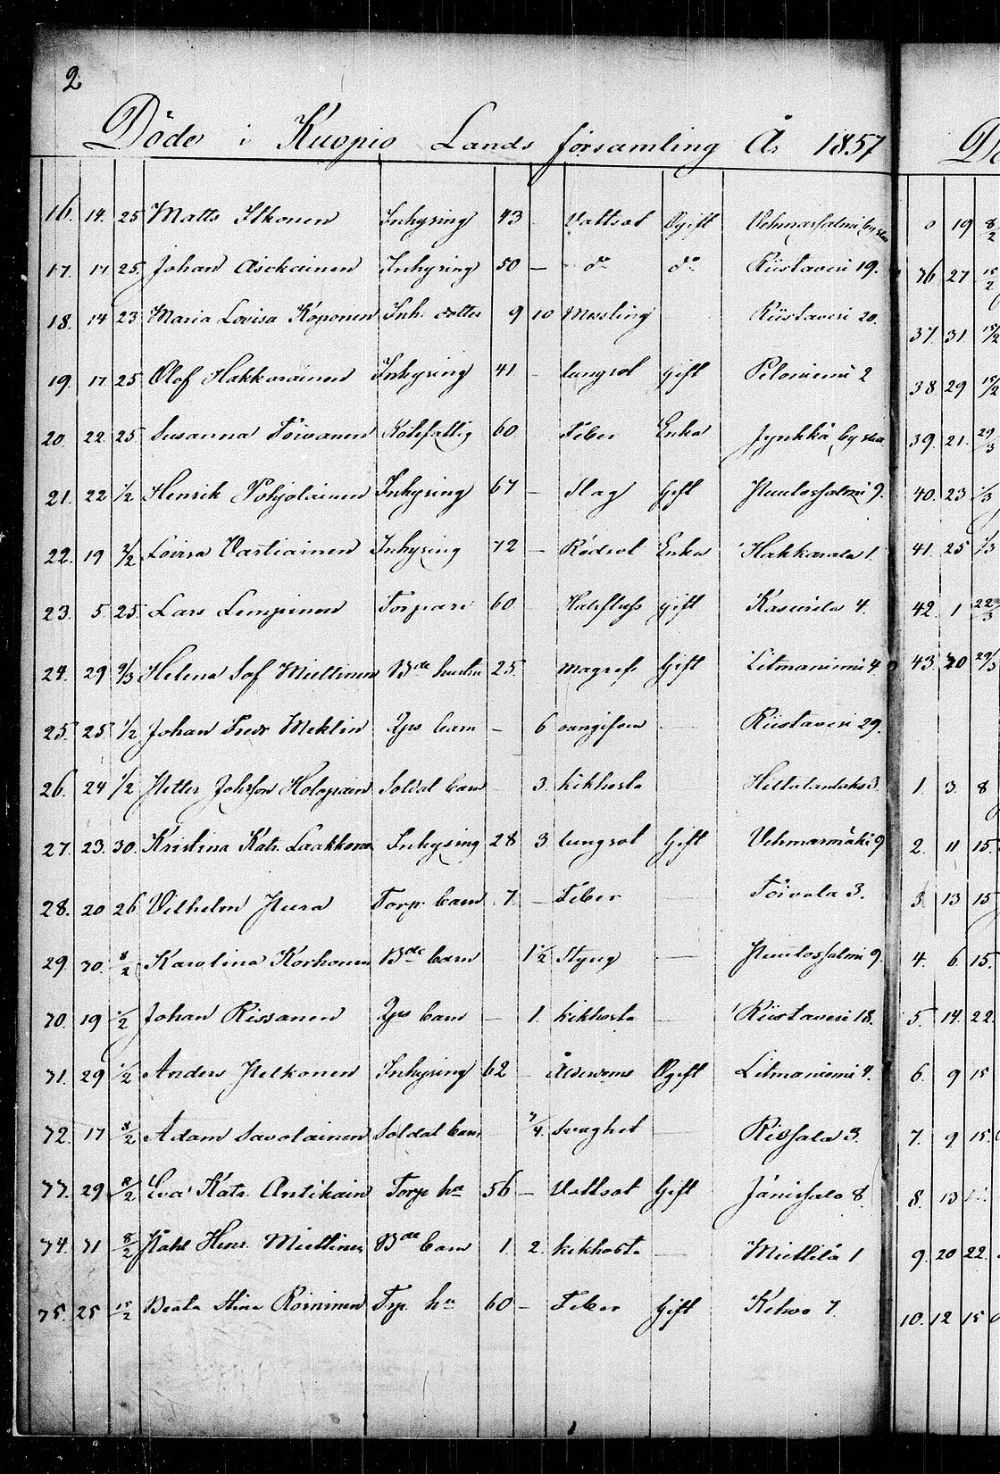 2
Döde i Kuopio Lands församling År 1857
16. 14. 25 Matts Itkonen Inhysing 43 Vattsot Ogift Vehmassalmi by
17. 17 25. Johan Asikainen Inhysing 50 — do do Riistaveri 19.
18. 14 23 Maria Lovisa Koponen Inh. dotter 9 10 Messling Riistaveri 20.
19. 17. 25 Olof Hakkarainen Inhysing 41 - lungsot gift Peloniemi 2
20. 22. 25. Susanna Toivanen Rotefattig 60 Feber Enka Jynkkä by
21. 22 1/2 Henrik Pohjolainen Inhysing 67 - Slag Gift Puutossalmi 9.
22. 19 2/2 Lovisa Vartiainen Inhysing 72 - Rödsot Enka Hakkarala 1.
23. 5. 25. Lars Lempinen Torpare 60 Halsfluss gift Kasurila 4.
24. 29 9/3 Helena Sof Miettinen Bde hustru 25 magref Gift Litmaniemi 4
25. 25 1/2 Johan Fredr Meklin Tps barn - 6 oangifven — Riistaveri 29.
26. 24 1/2 Petter Johsson Holopain Soldat barn 3. kikhosta 3.
27. 23. 30. Kristina Katr. Laakkonen Inhysing 28 3 lungsot Gift Vehmasmäki 9
28. 20 26 Vilhelm Pursa Torp barn 7 - Feber — Toivala 3.
29. 30. 8/2 Karolina Korhonen Bde barn 1 1/2 Styng — Puutossalmi 9.
30. 19 1/2 Johan Rissanen Tps barn — 1. kikhosta — Riistaveri 18.
31. 29 1/2 Anders Pelkonen Inhysing 62 Ålderdoms Ogift Litmaniemi 4.
32. 17 8/2 Adam Savolainen Soldat barn 3/4. svaghet — Rissala 3.
33. 29 8/2 Eva Katr. Antikain Torp ha 56 - Vattsot Gift Jänissalo 8.
34. 31 8/2 Påhl Henr. Miettinen Bde barn 1 2. kikhosta — Miettilä 1
35. 25 15/2 Beata Stina Roininen Trp. ha 60 - Feber Gift Kehvo 7.
0 19 8/2
36 27 15/2
37. 31 15/2
38 29 15/2
39. 21. 29/3
40. 23 1/3
41. 25 1/3
42. 1 22/3
43. 30 29/3
1. 3. 8
2. 11 15.
3. 13 15
4. 6. 15.
5. 14. 22.
6. 9 15
7. 9 15.
8. 13
9. 20 22.
10. 12 15